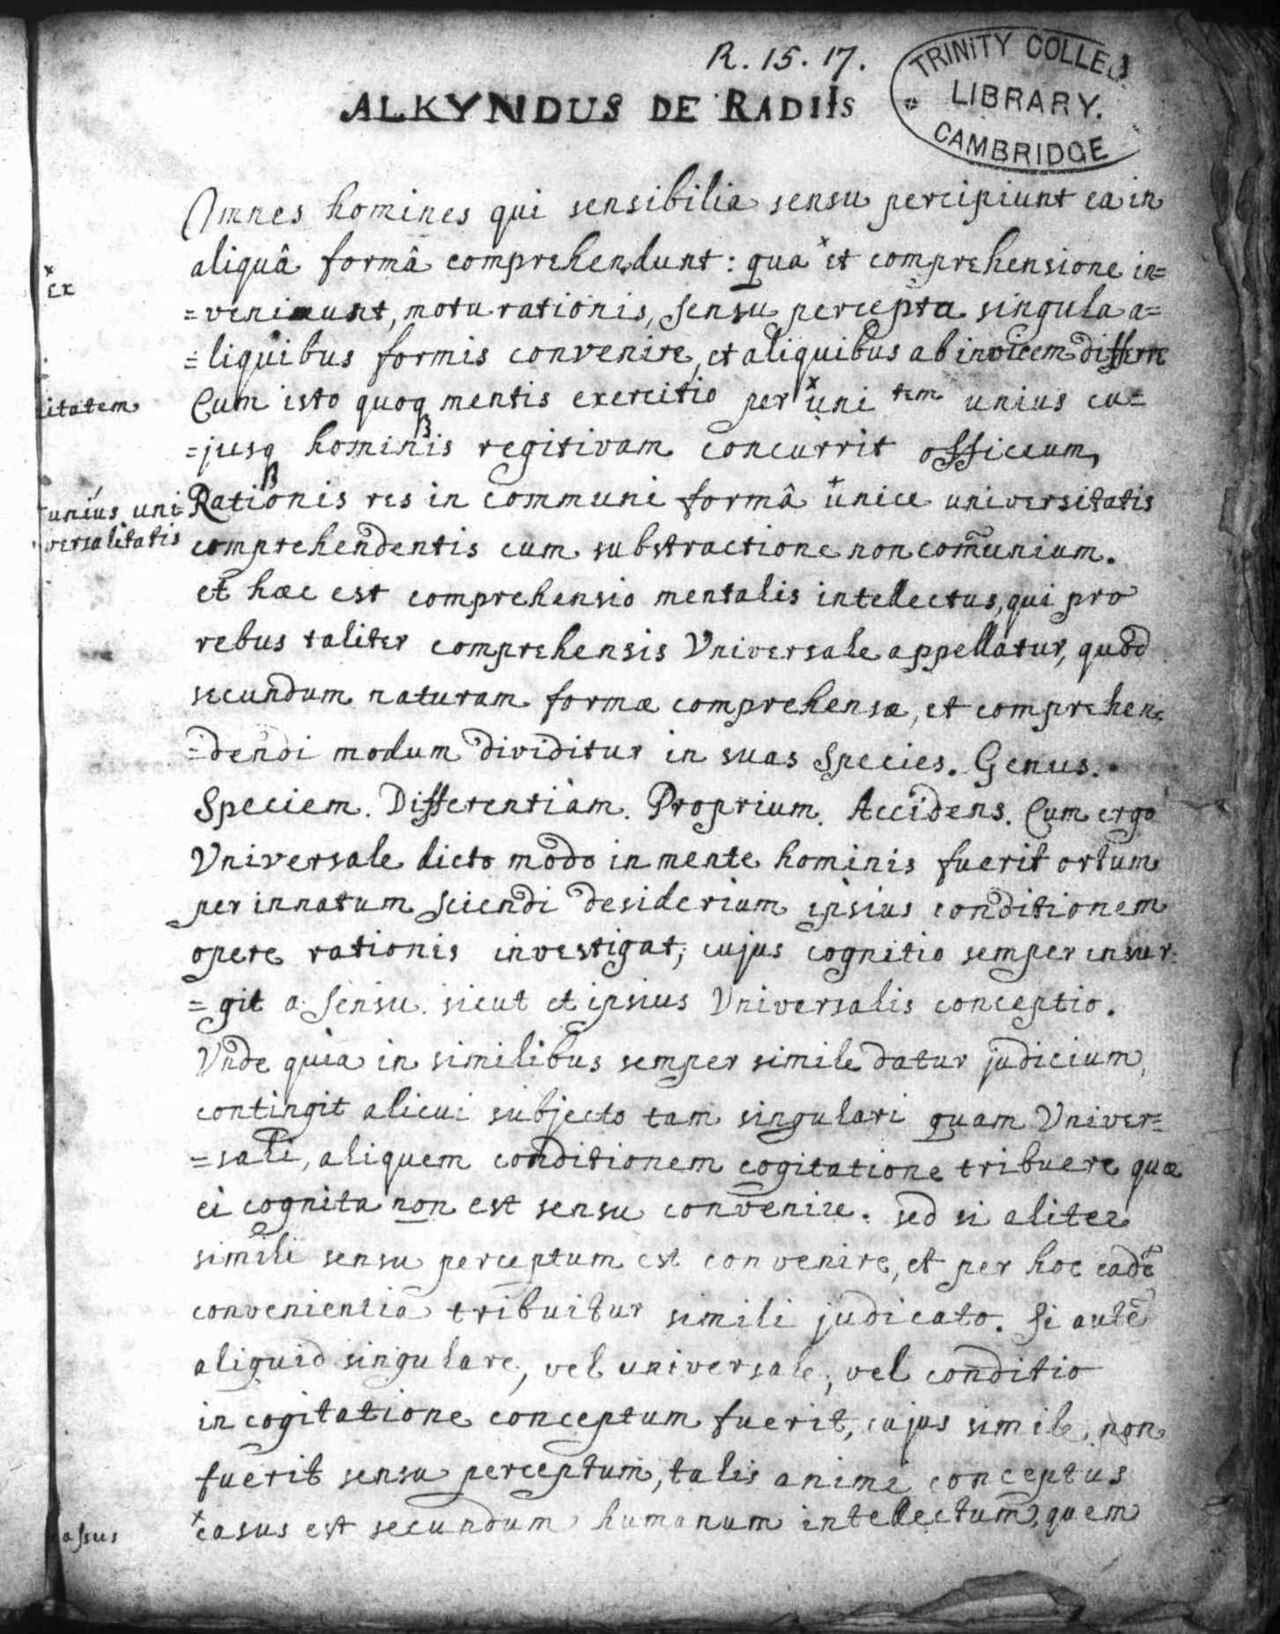 R. 15. 17.
TRINITY COLLE
LIBRARY.
CAMBRIDGE
ALKYNDUS DE RADIIS
Omnes homines qui sensibilia sensu percipiunt ea in
aliquâ formâ comprehendunt: qua x et comprehensione in=
x ex
=venimunt, motu rationis, sensu percepta singula a=
=liquibus formis convenire, et aliquibus ab invicem differre
Cum isto quoq mentis exercitio per x uni tem unius cu=
litatem
=jusq hominis regitivam concurrit officium,
Rationis res in communi formâ unice universitatis
unius uni
versalitatis
comprehendentis cum substractione non comũnium.
et hæc est comprehensio mentalis intellectus, qui pro
rebus taliter comprehensis Vniversale appellatur, quod
secundum naturam formæ comprehensæ, et comprehen
=dendi modum dividitur in suas Species. Genus.
Speciem. Differentiam. Proprium. Accidens. Cum ergo
Vniversale dicto modo in mente hominis fuerit ortum
per innatum sciendi desiderium ipsius conditionem
opere rationis investigat; cujus cognitio semper insur=
=git a sensu. sicut et ipsius Vniversalis conceptio.
Vnde quia in similibus semper simile datur judicium,
contingit alicui subjecto tam singulari quam Vniver=
=sali, aliquem conditionem cogitatione tribuere quæ
ei cognita non est sensu convenire. sed si aliter
simili sensu perceptum est convenire, et per hoc eadẽ
convenientia tribuitur simili judicato. Si autẽ
aliquid singulare, vel universale, vel conditio
in cogitatione conceptum fuerit, cujus simile non
fuerit sensu perceptum, talis animi conceptus
x casus est secundum humanum intellectum, quem
cassus